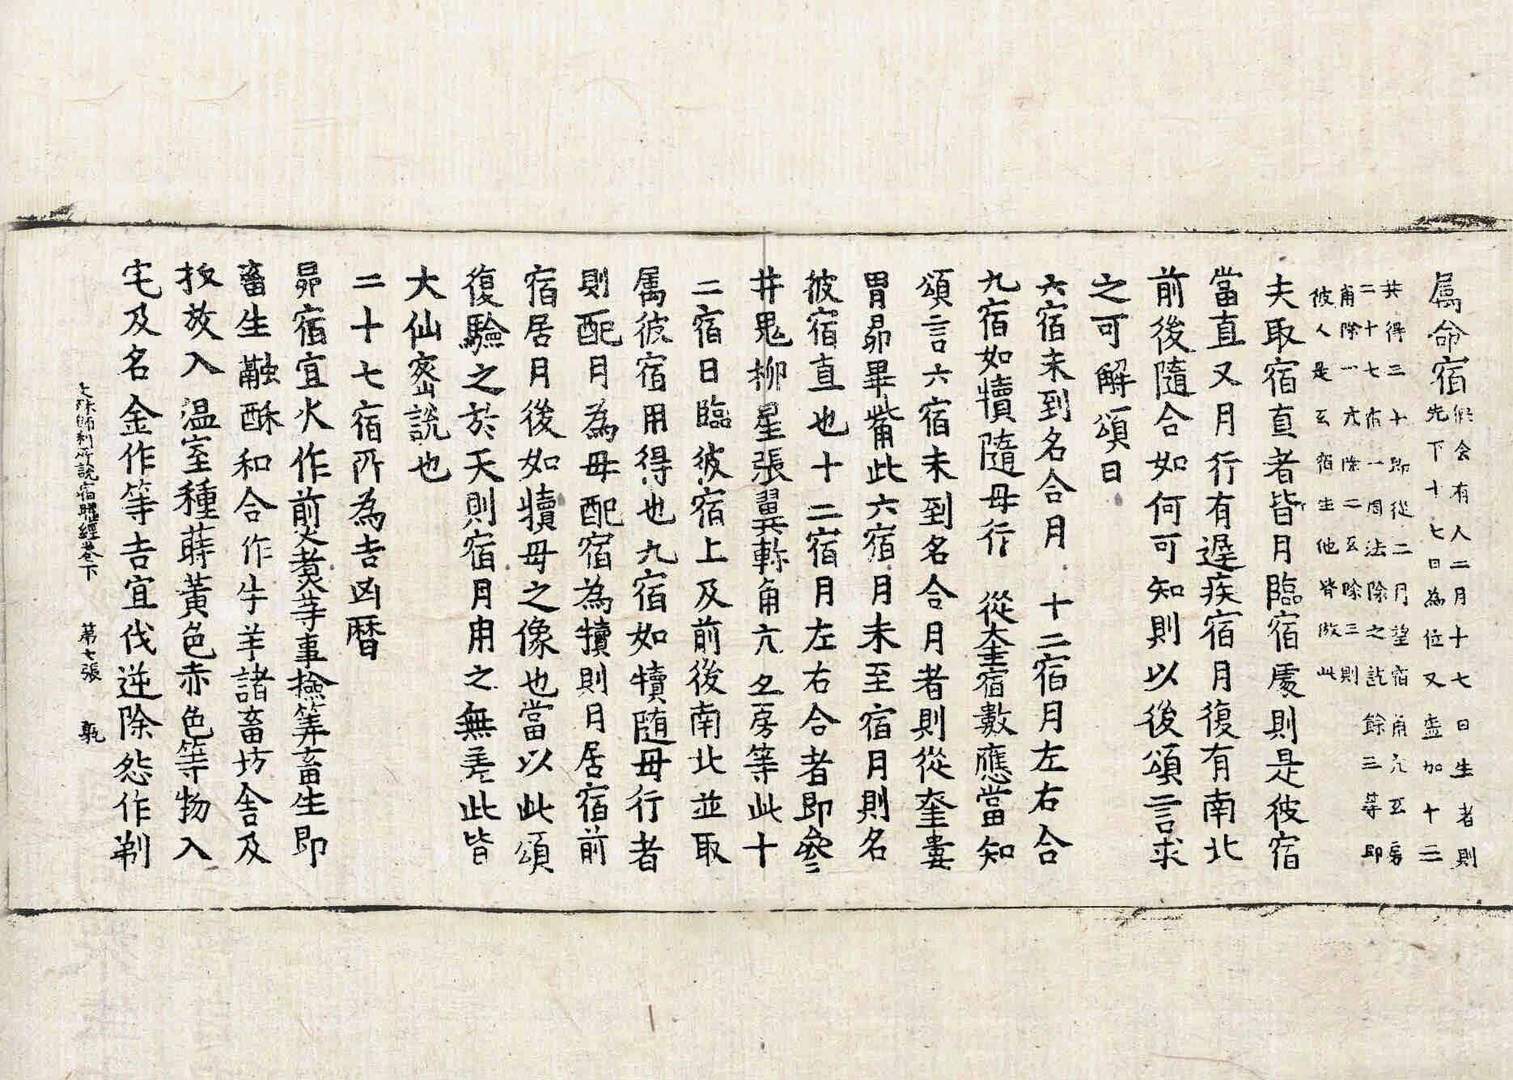 属命宿假令有人二月十七日生者則
先下十七日為位又盡加十三
共得三十即從二月望宿角亢互房
二十七有一周法除之訖餘三等即
角除一亢除二互除三則
彼人是互宿生他皆倣此
夫取宿直者皆月臨宿處則是彼宿
當直又月行有遲疾宿月復有南北
前後隨合如何可知則以後頌言求
之可解頌曰
六宿未到名合月　十二宿月左右合
九宿如犢隨母行　從奎宿數應當知
頌言六宿未到名合月者則從奎婁
胃昴畢觜此六宿月未至宿月則名
彼宿直也十二宿月左右合者即參
井鬼柳星張翼軫角亢互房等此十
二宿日臨彼宿上及前後南北並取
属彼宿用得也九宿如犢隨母行者
則配月為母配宿為犢則月居宿前
宿居月後如犢母之像也當以此頌
復驗之於天則宿月用之無差此皆
大仙密説也
二十七宿所為吉凶暦
昴宿宜火作煎煮等事撿筭畜生即
畜生融酥和合作牛羊諸畜坊舍及
牧放入温室種蒔黃色赤色等物入
宅及名金作等吉宜伐逆除怨作剃
文殊師利所說宿曜經卷下　第七張　亁